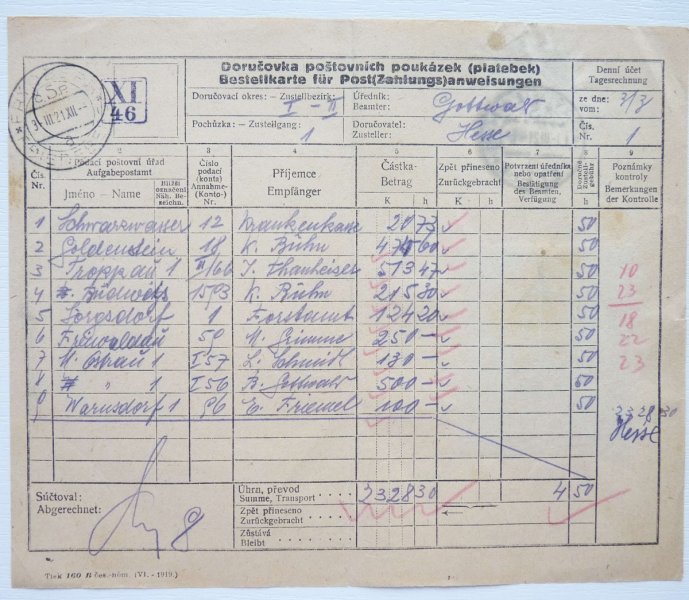 Doručovka poštovních poukázek (platebek)
Bestellkarte für Post(Zahlungs)anweisungen
Denní účet
Tagesrechnung
XI
46
31.III.21.XII
Doručovací okres: - Zustellbezirk: I - II
Úředník: Beamter: Gottwald
ze dne: vom: 31/3
Pochůzka: - Zustellgang: 1
Doručovatel: Zusteller: Hesse
Čís. Nr. 1
1 2 3 4 5 6 7 8 9
Čís. Nr.
Podací poštovní úřad
Aufgabepostamt
Jméno - Name
Bližší označení Näh. Bezeichn.
Číslo podací (konta) Annahme-(Konto-) Nr.
Příjemce
Empfänger
Částka- Betrag
K h
Zpět přineseno
Zurückgebracht
K h
Potvrzení úředníka nebo opatření
Bestätigung des Beamten, Verfügung
Doručné Zustellgebühr
h
Poznámky kontroly
Bemerkungen der Kontrolle
1 Schwarzwasser 12 Krankenkasse 20 73 50
2 Goldenstein 18 K. Bühn 60 50
3 Troppau 1 II/66 J. Thanheiser 513 47 50 10
4 1593 K. Bühn 215 30 50 23
5 Sorgsdorf 1 Forstamt 124 20 50 18
6 Freiwaldau 59 M. Grimme 250 - 50 22
7 M. Ostrau 1 I 57 L. Schmidt 130 - 50 23
8 " 1 I 56 B. Gottwald 500 - 50
9 Warnsdorf 1 96 E. Friemel 100 - 50
2328 30
Hesse
Súčtoval:
Abgerechnet:
Úhrn, převod
Summe, Transport . . . . 2328 30 4 50
Zpět přineseno
Zurückgebracht . . . . .
Zůstává
Bleibt . . . . . . .
Tisk 160 B čes.-něm. (VI. - 1919.)